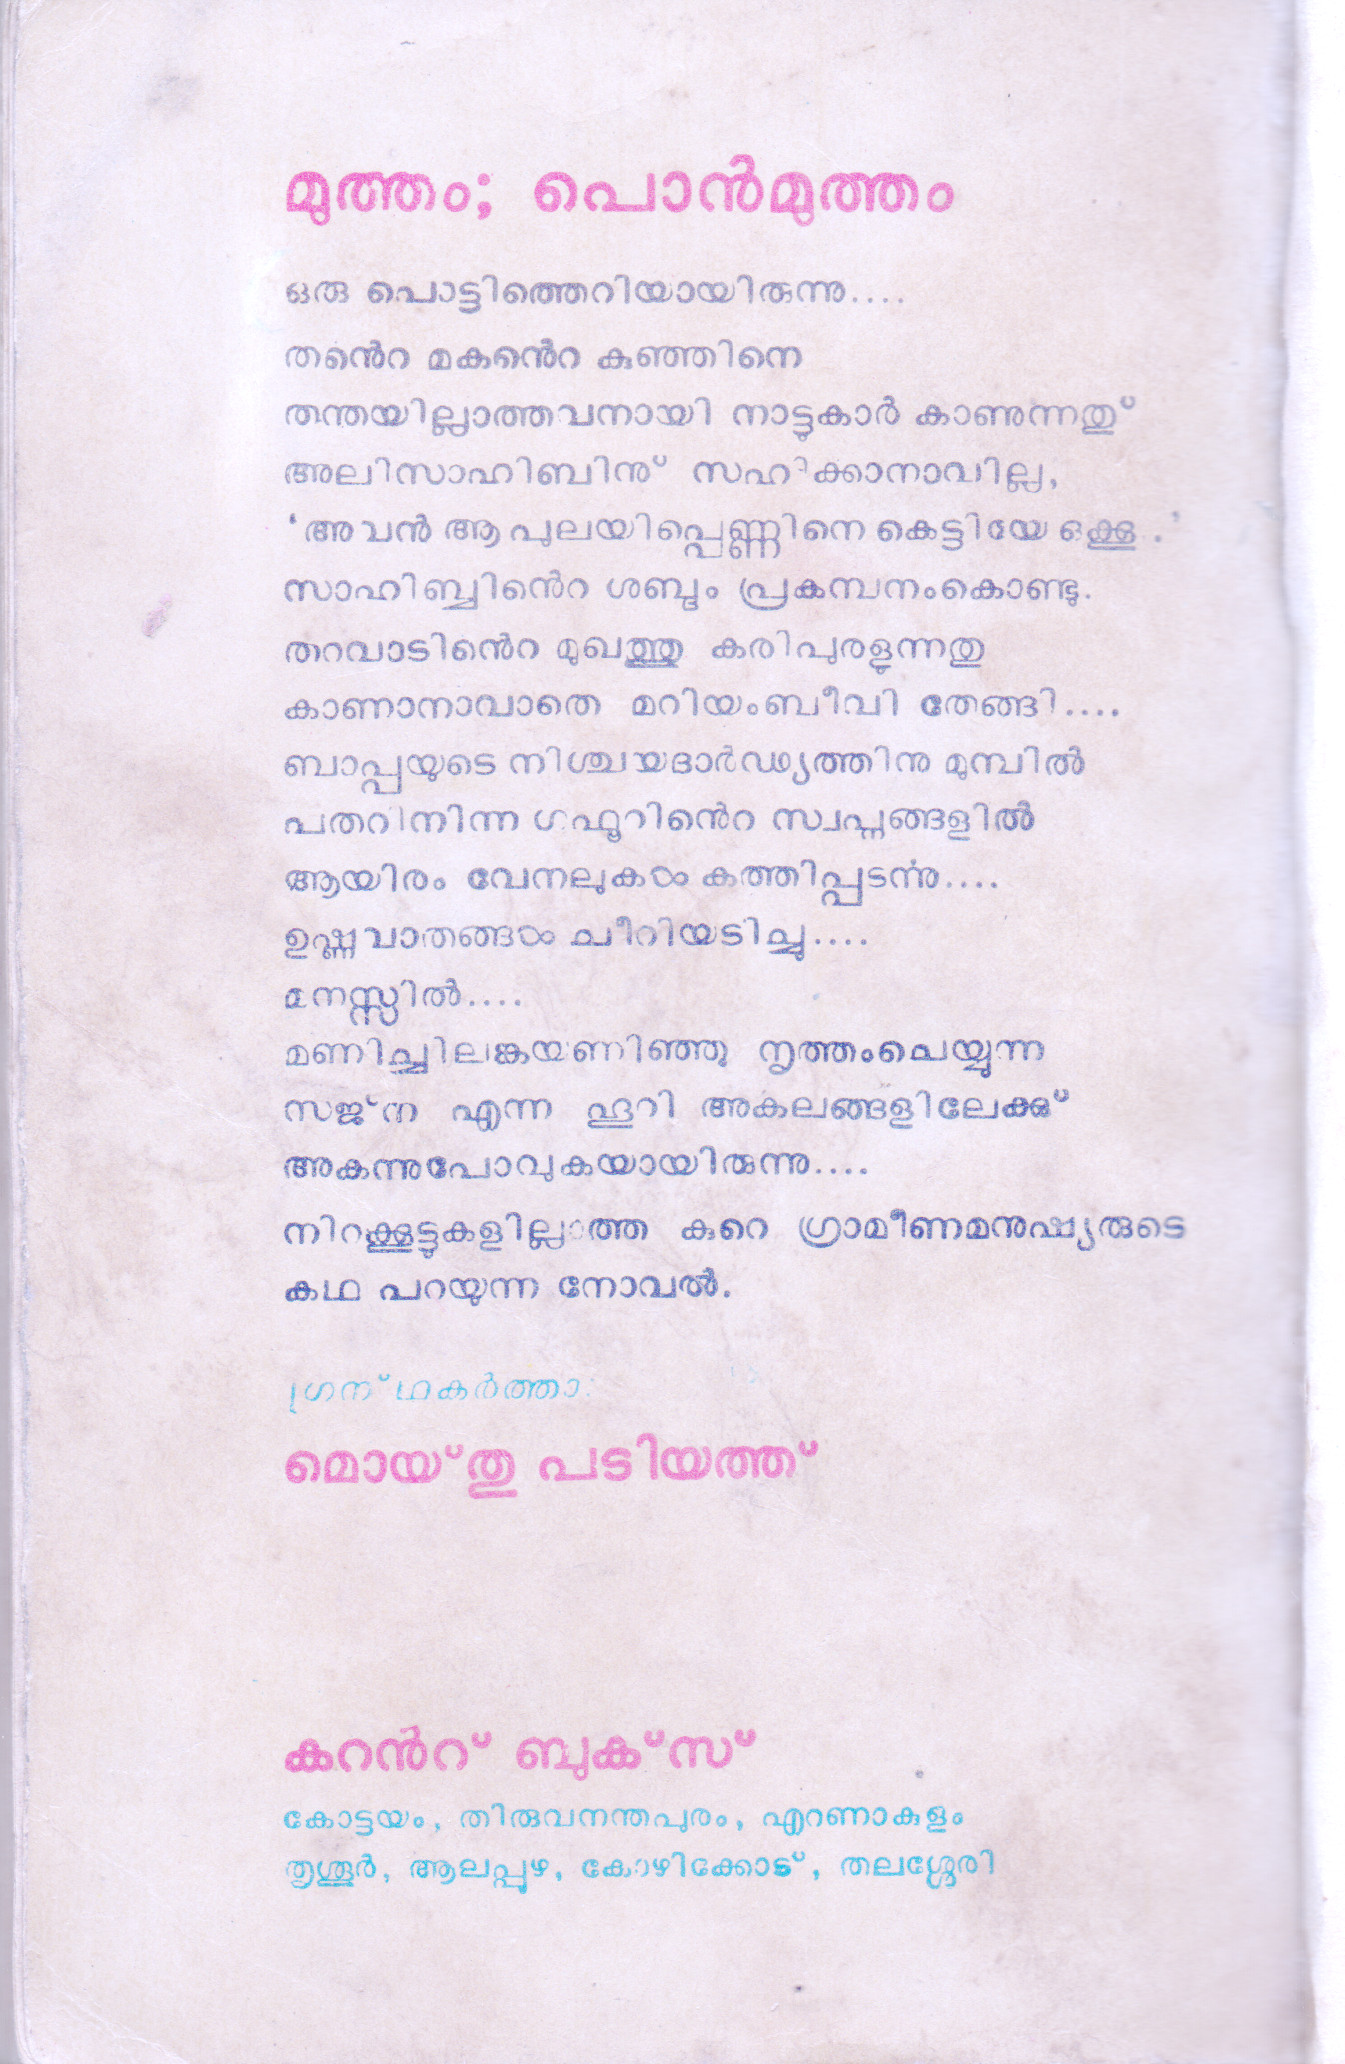 മുത്തം; പൊൻമുത്തം
ഒരു പൊട്ടിത്തെറിയായിരുന്നു....
തൻെറ മകൻെറ കുഞ്ഞിനെ
തന്തയില്ലാത്തവനായി നാട്ടുകാർ കാണുന്നതു്
അലിസാഹിബിനു് സഹിക്കാനാവില്ല,
‘അവൻ ആ പുലയിപ്പെണ്ണിനെ കെട്ടിയേ ഒക്കൂ..’
സാഹിബ്ബിൻെറ ശബ്ദം പ്രകമ്പനംകൊണ്ടു.
തറവാടിൻെറ മുഖത്തു കരിപുരളുന്നതു
കാണാനാവാതെ മറിയംബീവി തേങ്ങി....
ബാപ്പയുടെ നിശ്ചയദാർഢ്യത്തിനു മുമ്പിൽ
പതറിനിന്ന ഗഫൂറിൻെറ സ്വപ്നങ്ങളിൽ
ആയിരം വേനലുകൾ കത്തിപ്പടർന്നു....
ഉഷ്ണവാതങ്ങൾ ചീറിയടിച്ചു....
മനസ്സിൽ....
മണിച്ചിലങ്കയണിഞ്ഞു നൃത്തംചെയ്യുന്ന
സജ്ന എന്ന ഹൂറി അകലങ്ങളിലേക്കു്
അകന്നുപോവുകയായിരുന്നു....
നിറക്കൂട്ടുകളില്ലാത്ത കുറെ ഗ്രാമീണമനുഷ്യരുടെ
കഥ പറയുന്ന നോവൽ.
ഗ്രന്ഥകർത്താ:
മൊയ്തു പടിയത്ത്
കറൻറ് ബുക്സ്
കോട്ടയം, തിരുവനന്തപുരം, എറണാകുളം
തൃശൂർ, ആലപ്പുഴ, കോഴിക്കോട്, തലശ്ശേരി